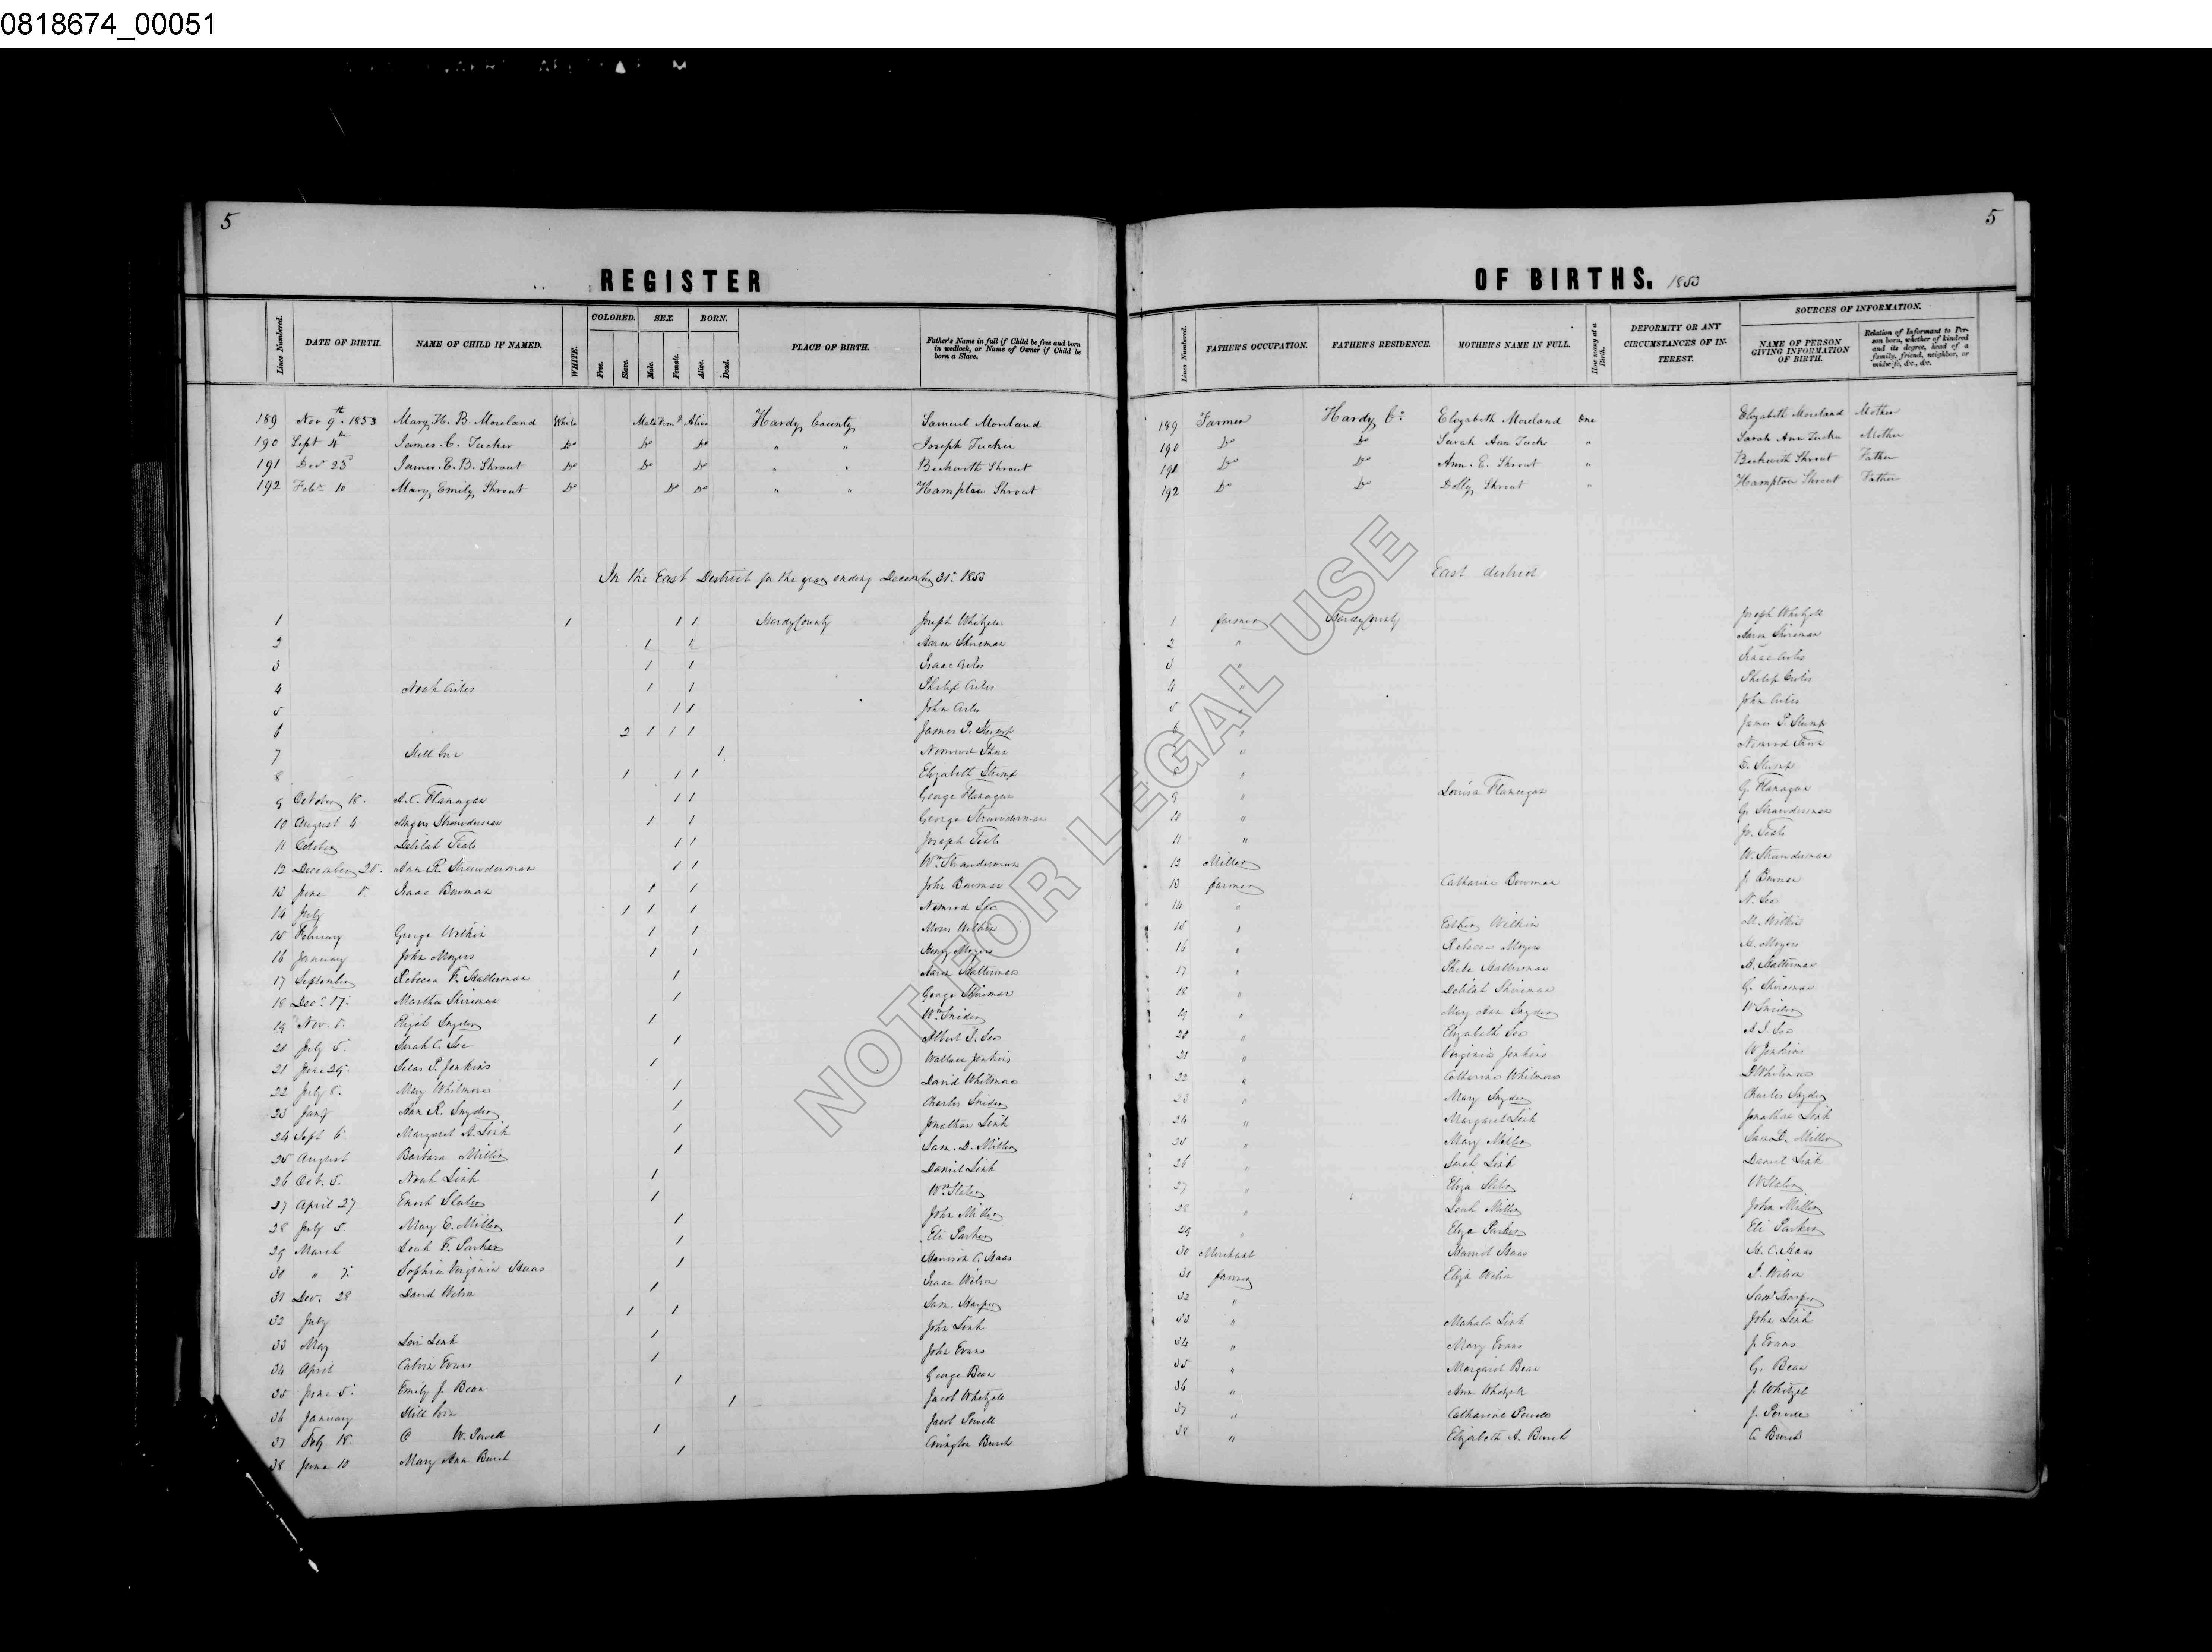 0818674_00051
5
5
REGISTER
OF BIRTHS. 1853
Lines Numbered. DATE OF BIRTH. NAME OF CHILD IF NAMED. WHITE. COLORED. Free. Slave. SEX. Male. Female. BORN. Alive. Dead. PLACE OF BIRTH. Father's Name in full if Child be free and born in wedlock, or Name of Owner if Child be born a Slave.
Lines Numbered. FATHER'S OCCUPATION. FATHER'S RESIDENCE. MOTHER'S NAME IN FULL. How many at a Birth. DEFORMITY OR ANY CIRCUMSTANCES OF INTEREST. SOURCES OF INFORMATION. NAME OF PERSON GIVING INFORMATION OF BIRTH. Relation of Informant to Person born, whether of kindred and its degree, head of a family, friend, neighbor, or midwife, &c., &c.
189 Nov 9th 1853 Mary H. B. Moreland White Alive Hardy County Samuel Moreland 189 Farmer Hardy Co. Elizabeth Moreland One Elizabeth Moreland Mother
190 Sept 4th James C. Tucker Do Do Do " " Joseph Tucker 190 Do Do Sarah Ann Tucker " Sarah Ann Tucker Mother
191 Dec 23d James E. B. Shrout Do Do Do " " Beckworth Shrout 191 Do Do Ann E. Shrout " Beckworth Shrout Father
192 Feb. 10 Mary Emily Shrout Do Do Do " " Hampton Shrout 192 Do Do Dolly Shrout " Hampton Shrout Father
In the East District for the year ending December 31st 1853 East district
1 1 1 1 Hardy County Joseph Whetzell 1 farmer Hardy County Joseph Whetzell
2 1 1 Aaron Shireman 2 " Aaron Shireman
3 1 1 Isaac Oates 3 " Isaac Oates
4 Noah 1 1 Philip 4 " Philip
5 1 1 John 5 " John
6 2 1 1 1 James P. Stump 6 " James P. Stump
7 Still born 1 Nimrod 7 " Nimrod
8 1 1 1 Elizabeth Stump " E. Stump
9 October 18. A.C. Flanagan 1 1 George Flanagan 9 " Louisa Flanagan G. Flanagan
10 August 4 Angus Strawderman 1 1 George Strawderman 10 " G. Strawderman
11 October Delilah Teats 1 1 Joseph Teats 11 " Jo. Teats
12 December 25. Ann R. Strawderman 1 1 Wm Strawderman 12 Miller W. Strawderman
13 June 5. Isaac Bowman 1 1 John Bowman 13 farmer Catharine Bowman J. Bowman
14 July 1 1 1 Nimrod See 14 " N. See
15 February George Wilkin 1 1 Moses Wilkin 15 " Esther Wilkin M. Wilkin
16 January John Moyers 1 1 Henry Moyers 16 " Rebecca Moyers H. Moyers
17 September Rebecca F. Halterman 1 Aaron Halterman 17 " Phebe Halterman A. Halterman
18 Dec. 17. Martha Shireman 1 George Shireman 18 " Delilah Shireman G. Shireman
19 Nov. 5. Elijah Snyder 1 Wm Snider 19 " Mary Ann Snyder W Snider
20 July 5. Sarah C. See 1 Albert J. See 20 " Elizabeth See A J. See
21 June 29. Silas P. Jenkins 1 Wallace Jenkins 21 " Virginia Jenkins W Jenkins
22 July 8. Mary Whitmore 1 David Whitmore 22 " Catherine Whitmore D Whitmore
23 Jany Ann R. Snyder 1 Charles Snider 23 " Mary Snyder Charles Snyder
24 Sept 6. Margaret A. Link 1 Jonathan Link 24 " Margaret Link Jonathan Link
25 August Barbara Miller 1 Sam. D. Miller 25 " Mary Miller Sam D. Miller
26 Oct. 5. Noah Link 1 Daniel Link 26 " Sarah Link Daniel Link
27 April 27 Enoch Slater 1 Wm Slater 27 " Eliza Slater W Slater
28 July 5. Mary E. Miller 1 John Miller 28 " Leah Miller John Miller
29 March Leah F. Parker 1 Eli Parker 29 " Eliza Parker Eli Parker
30 " 7. Sophia Virginia Haas 1 Harrison C. Haas 30 Merchant Harriet Haas H. C. Haas
31 Dec. 28 David Wilson 1 Isaac Wilson 31 farmer Eliza Wilson I. Wilson
32 July 1 1 Sam. Harper 32 " Saml Harper
33 May Levi Link 1 John Link 33 " Mahala Link John Link
34 April Calvin Evans 1 John Evans 34 " Mary Evans J. Evans
35 June 5. Emily J. Bean 1 George Bean 35 " Margaret Bean G. Bean
36 January Still born 1 Jacob Whetzell 36 " Ann Whetzell J. Whetzel
37 Feby 18. C W. Powell 1 Jacob Powell 37 " Catharine Powell J. Powell
38 June 10 Mary Ann Burch 1 Covington Burch 38 " Elizabeth A. Burch C. Burch
NOT FOR LEGAL USE